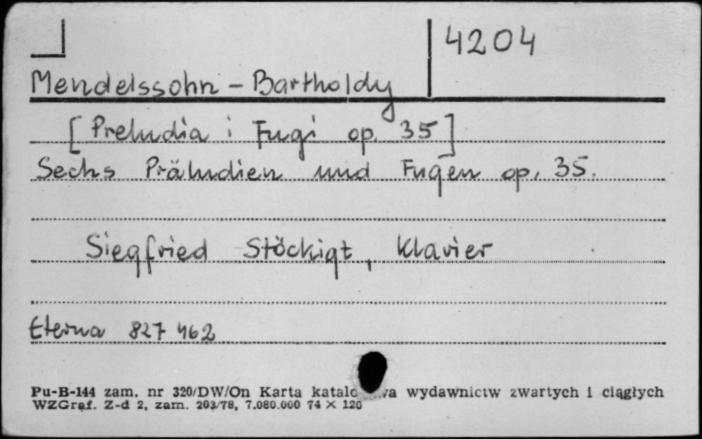 4204
Mendelssohn - Bartholdy
[Preludia i Fugi op. 35]
Sechs Präludien und Fugen op. 35.
Siegfried Stöckigt, Klavier
Eterna 827 462
Pu-B-144 zam. nr 320/DW/On Karta katalo wa wydawnictw zwartych i ciągłych
WZGraf. Z-d 2, zam. 203/78, 7.080.000 74 × 120